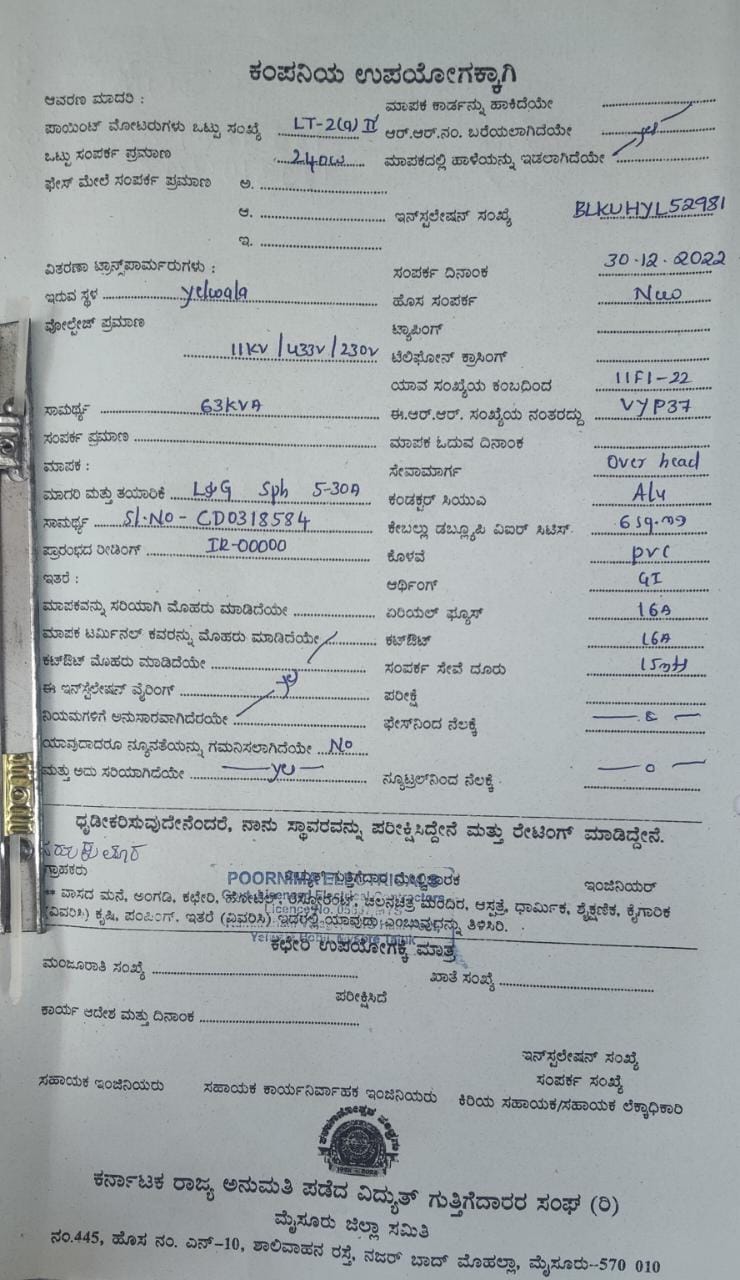 ಕಂಪನಿಯ ಉಪಯೋಗಕ್ಕಾಗಿ
ಆವರಣ ಮಾದರಿ :
ಮಾಪಕ ಕಾರ್ಡನ್ನು ಹಾಕಿದೆಯೇ
ಪಾಯಿಂಟ್ ಮೋಟರುಗಳು ಒಟ್ಟು ಸಂಖ್ಯೆ LT-2(a) II ಆರ್.ಆರ್.ನಂ. ಬರೆಯಲಾಗಿದೆಯೇ yes
ಒಟ್ಟು ಸಂಪರ್ಕ ಪ್ರಮಾಣ 240w ಮಾಪಕದಲ್ಲಿ ಹಾಳೆಯನ್ನು ಇಡಲಾಗಿದೆಯೇ
ಫೇಸ್ ಮೇಲೆ ಸಂಪರ್ಕ ಪ್ರಮಾಣ ಅ.
ಆ. ಇನ್‌ಸ್ಟಲೇಷನ್ ಸಂಖ್ಯೆ BLKUHYL52981
ಇ.
ವಿತರಣಾ ಟ್ರಾನ್ಸ್‌ಪಾರ್ಮರುಗಳು : ಸಂಪರ್ಕ ದಿನಾಂಕ 30.12.2022
ಇರುವ ಸ್ಥಳ yelwala ಹೊಸ ಸಂಪರ್ಕ New
ವೋಲ್ಟೇಜ್ ಪ್ರಮಾಣ ಟ್ಯಾಪಿಂಗ್
11KV / 433V / 230V ಟೆಲಿಫೋನ್ ಕ್ರಾಸಿಂಗ್
ಯಾವ ಸಂಖ್ಯೆಯ ಕಂಬದಿಂದ 11F1-22
ಸಾಮರ್ಥ್ಯ 63KVA ಈ.ಆರ್.ಆರ್. ಸಂಖ್ಯೆಯ ನಂತರದ್ದು VYP37
ಸಂಪರ್ಕ ಪ್ರಮಾಣ ಮಾಪಕ ಓದುವ ದಿನಾಂಕ
ಮಾಪಕ : ಸೇವಾಮಾರ್ಗ Over head
ಮಾದರಿ ಮತ್ತು ತಯಾರಿಕೆ L&G Sph 5-30A ಕಂಡಕ್ಟರ್ ಸಿಯುಎ Alu
ಸಾಮರ್ಥ್ಯ Sl.No - CD0318584 ಕೇಬಲ್ಲು ಡಬ್ಲ್ಯೂಪಿ ವಿಐರ್ ಸಿಟಿಸ್. 6 sq.mg
ಪ್ರಾರಂಭದ ರೀಡಿಂಗ್ IR-00000 ಕೊಳವೆ pvc
ಇತರೆ : ಆರ್ಥಿಂಗ್ GI
ಮಾಪಕವನ್ನು ಸರಿಯಾಗಿ ಮೊಹರು ಮಾಡಿದೆಯೇ ಏರಿಯಲ್ ಫ್ಯೂಸ್ 16A
ಮಾಪಕ ಟರ್ಮಿನಲ್ ಕವರನ್ನು ಮೊಹರು ಮಾಡಿದೆಯೇ ಕಟ್‌ಔಟ್ 16A
ಕಟ್‌ಔಟ್ ಮೊಹರು ಮಾಡಿದೆಯೇ ಸಂಪರ್ಕ ಸೇವೆ ದೂರು 15mtr
ಈ ಇನ್‌ಸ್ಟಲೇಷನ್ ವೈರಿಂಗ್ ye ಪರೀಕ್ಷೆ
ನಿಯಮಗಳಿಗೆ ಅನುಸಾರವಾಗಿದೆರಯೇ ಫೇಸ್‌ನಿಂದ ನೆಲಕ್ಕೆ
ಯಾವುದಾದರೂ ನ್ಯೂನತೆಯನ್ನು ಗಮನಿಸಲಾಗಿದೆಯೇ No
ಮತ್ತು ಅದು ಸರಿಯಾಗಿದೆಯೇ — ye — ನ್ಯೂಟ್ರಲ್‌ನಿಂದ ನೆಲಕ್ಕೆ — 0 —
ಧೃಡೀಕರಿಸುವುದೇನೆಂದರೆ, ನಾನು ಸ್ಥಾವರವನ್ನು ಪರೀಕ್ಷಿಸಿದ್ದೇನೆ ಮತ್ತು ರೇಟಿಂಗ್ ಮಾಡಿದ್ದೇನೆ.
POORNIMA ELECTRICALS
ಗ್ರಾಹಕರು ವಿದ್ಯುತ್ ಗುತ್ತಿಗೆದಾರ ಮೇಲ್ವಿಚಾರಕ ಇಂಜಿನಿಯರ್
** ವಾಸದ ಮನೆ, ಅಂಗಡಿ, ಕಛೇರಿ, ಹೋಟೆಲ್, ರೆಸ್ಟೋರೆಂಟ್, ಚಲನಚಿತ್ರ ಮಂದಿರ, ಆಸ್ಪತ್ರೆ, ಧಾರ್ಮಿಕ, ಶೈಕ್ಷಣಿಕ, ಕೈಗಾರಿಕ
(ವಿವರಿಸಿ) ಕೃಷಿ, ಪಂಪಿಂಗ್, ಇತರೆ (ವಿವರಿಸಿ) ಇದರಲ್ಲಿ ಯಾವುದು ಎಂಬುವುದನ್ನು ತಿಳಿಸಿರಿ.
ಕಛೇರಿ ಉಪಯೋಗಕ್ಕೆ ಮಾತ್ರ
ಮಂಜೂರಾತಿ ಸಂಖ್ಯೆ ಖಾತೆ ಸಂಖ್ಯೆ
ಪರೀಕ್ಷಿಸಿದೆ
ಕಾರ್ಯ ಆದೇಶ ಮತ್ತು ದಿನಾಂಕ
ಇನ್‌ಸ್ಟಲೇಷನ್ ಸಂಖ್ಯೆ
ಸಂಪರ್ಕ ಸಂಖ್ಯೆ
ಸಹಾಯಕ ಇಂಜಿನಿಯರು ಸಹಾಯಕ ಕಾರ್ಯನಿರ್ವಾಹಕ ಇಂಜಿನಿಯರು ಕಿರಿಯ ಸಹಾಯಕ/ಸಹಾಯಕ ಲೆಕ್ಕಾಧಿಕಾರಿ
ಕರ್ನಾಟಕ ರಾಜ್ಯ ಅನುಮತಿ ಪಡೆದ ವಿದ್ಯುತ್ ಗುತ್ತಿಗೆದಾರರ ಸಂಘ (ರಿ)
ಮೈಸೂರು ಜಿಲ್ಲಾ ಸಮಿತಿ
ನಂ.445, ಹೊಸ ನಂ. ಎನ್-10, ಶಾಲಿವಾಹನ ರಸ್ತೆ, ನಜರ್ ಬಾದ್ ಮೊಹಲ್ಲಾ, ಮೈಸೂರು--570 010